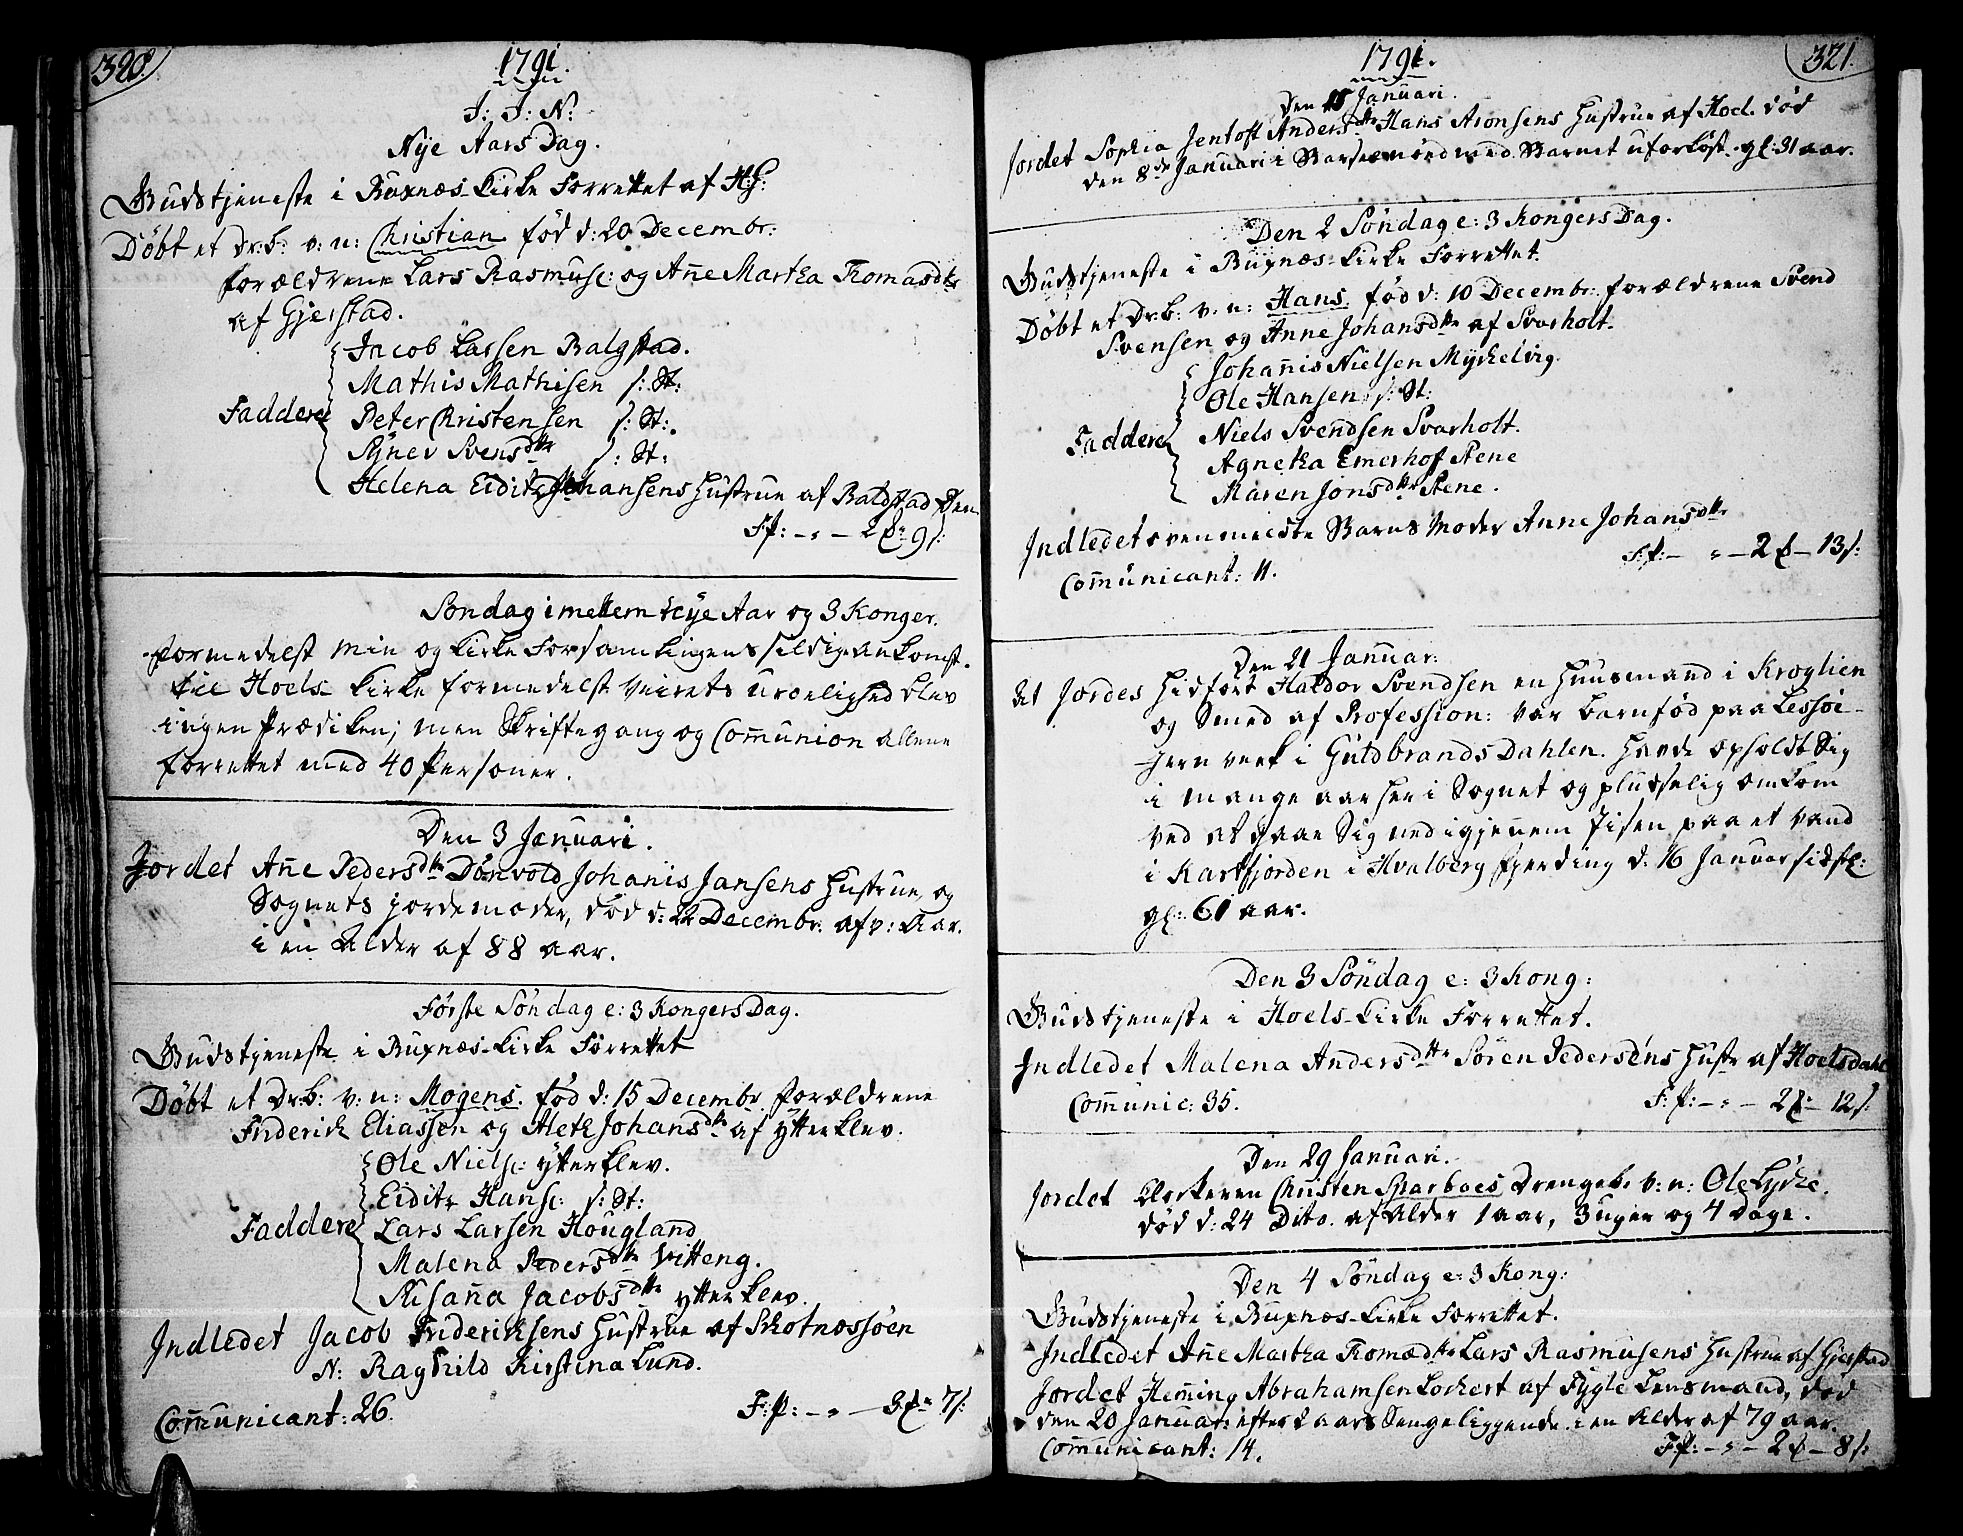 320.
1791.
J: J: N:
Nye Aars Dag.
Gudstjeneste i Buxnæs-Kirke Forrettet af H:
Døbt et Dr:b: v: n: Christian fød d: 20 Decembr:
forældrene Lars Rasmus: og Añe Martha Tomasdtr
af Gjerstad.
Jacob Larsen Balgstad.
Mathis Mathisen s: St:
Faddere Peter Christensen s: St:
Synev Svensdtr s: St:
Helena Eidis Johansens Hustrue af Balstad Øen
F:p: - " - 2 9 s:
Søndag imellem Nye Aar og 3 Konger.
formedelst min og Kirke Forsamlingens sildige ankomst
til Hoels Kirke formedelst Veirets urolighed blev
ingen Prædiken; men Skriftegang og Com̃union allene
forrettet med 40 Personer.
Den 3 Januari.
Jordet Añe Pedersdtr Dønvold Johañis Jansens Hustrue, og
Sognets jordemoder, død d: 22 Decembr: af v: Aar.
i en Alder af 88 aar.
Første Søndag e: 3 Kongers Dag.
Gudstjeneste i Buxnæs-Kirke Forrettet
Døbt et Dr:b: v: n: Mogens. fød d: 15 Decembr forældrene
Friderich Eliassen og Aleth Johansdtr af Ytterklev.
Ole Niels: Ytterklev.
Eidis Hans: s: St:
Faddere Lars Larsen Hougland
Malena Pedersdtr Vitteng.
Susaña Jacobsdtr Ytterklev
Indledet Jacob Friderichsens Hustrue af Skotnessøen
N: Raghild Kirstina Lund.
Com̃unicant: 26. F:p: - " - 3 7 s:
321.
1791.
Den 15 Januari.
Jordet Sophia Jentoft Andersdtr Hans Aronsens Hustrue af Hoel. død
den 8de Januari i Barselnød med Barnet uforløst. gl: 31 aar.
Den 2 Søndag e: 3 Kongers Dag.
Gudstjeneste i Buxnæs-Kirke Forrettet.
Døbt et Dr:b: v: n: Hans. fød d: 10 Decembr: forældrene Svend
Svensen og Anne Johansdtr af Svarholt.
Johañis Nielsen Myrkelvig.
Ole Hansen s: St:
Faddere Niels Svendsen Svarholt.
Agnetha Emerhof Stene
Maren Jonsdtr Stene.
Indledet ovenmelste Barns Moder Anne Johansdtr
F:p: - " - 2 - 13 s:
Com̃unicant: 11.
Den 21 Januar:
At Jordes hidført Haldor Svendsen en Huusmand i Kroglien
og Smed af Profession: var barnfød paa Lessøe-
Jernverk i Guldbrands Dahlen. havde opholdt Sig
i mange aar her i Sognet og pludselig omkom
ved at gaae Sig ned igjennem Jisen paa et vand
i Kartfjorden i Hvalberg fjerding d: 16 Januar sidstl:
gl: 61 aar.
Den 3 Søndag e: 3 Kong:
Gudstjeneste i Hoels-Kirke Forrettet.
Indledet Malena Andersdtr Søren Pedersens Hustr af Hoelsdahl
Com̃unic: 35. F:p: - " - 2 - 12 s:
Den 29 Januari.
Jordet Klokkeren Christen Sparboes Drengeb: v: n: Ole Lydke.
død d: 24 Dito. af Alder 1 aar, 3 uger og 4 Dage.
Den 4 Søndag e: 3 Kong:
Gudstjeneste i Buxnæs-Kirke Forrettet.
Indledet Añe Martha Tomædtr Lars Rasmusens Hustrue af Gjerstad
Jordet Hem̃ing Abrahamsen Lockert af Fygle Lensmand, død
den 20 Januar: efter 2 aars Sengeliggende i en Alder af 79 aar.
Com̃unicant: 14. F:p: - " - 2 - 8 s: